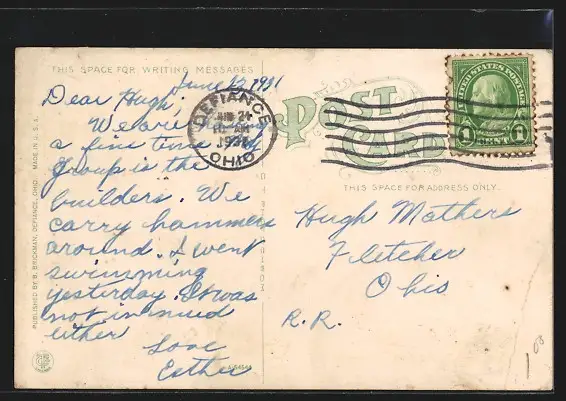 THIS SPACE FOR WRITING MESSAGES
June 1931
Dear Hugh;
We are having
a fine time. My
group is the
builders. We
carry hammers
around. I went
swimming
yesterday. It was
not in mud
either
Love
Esther
PUBLISHED BY B. BRICKMAN, DEFIANCE, OHIO. MADE IN U.S.A.
DEFIANCE
JUN 24
AM
1931
OHIO
POST
CARD
UNITED STATES POSTAGE
1 CENT 1
THIS SPACE FOR ADDRESS ONLY.
Hugh Mathers
Fletcher
Ohio
R.R.
1 00